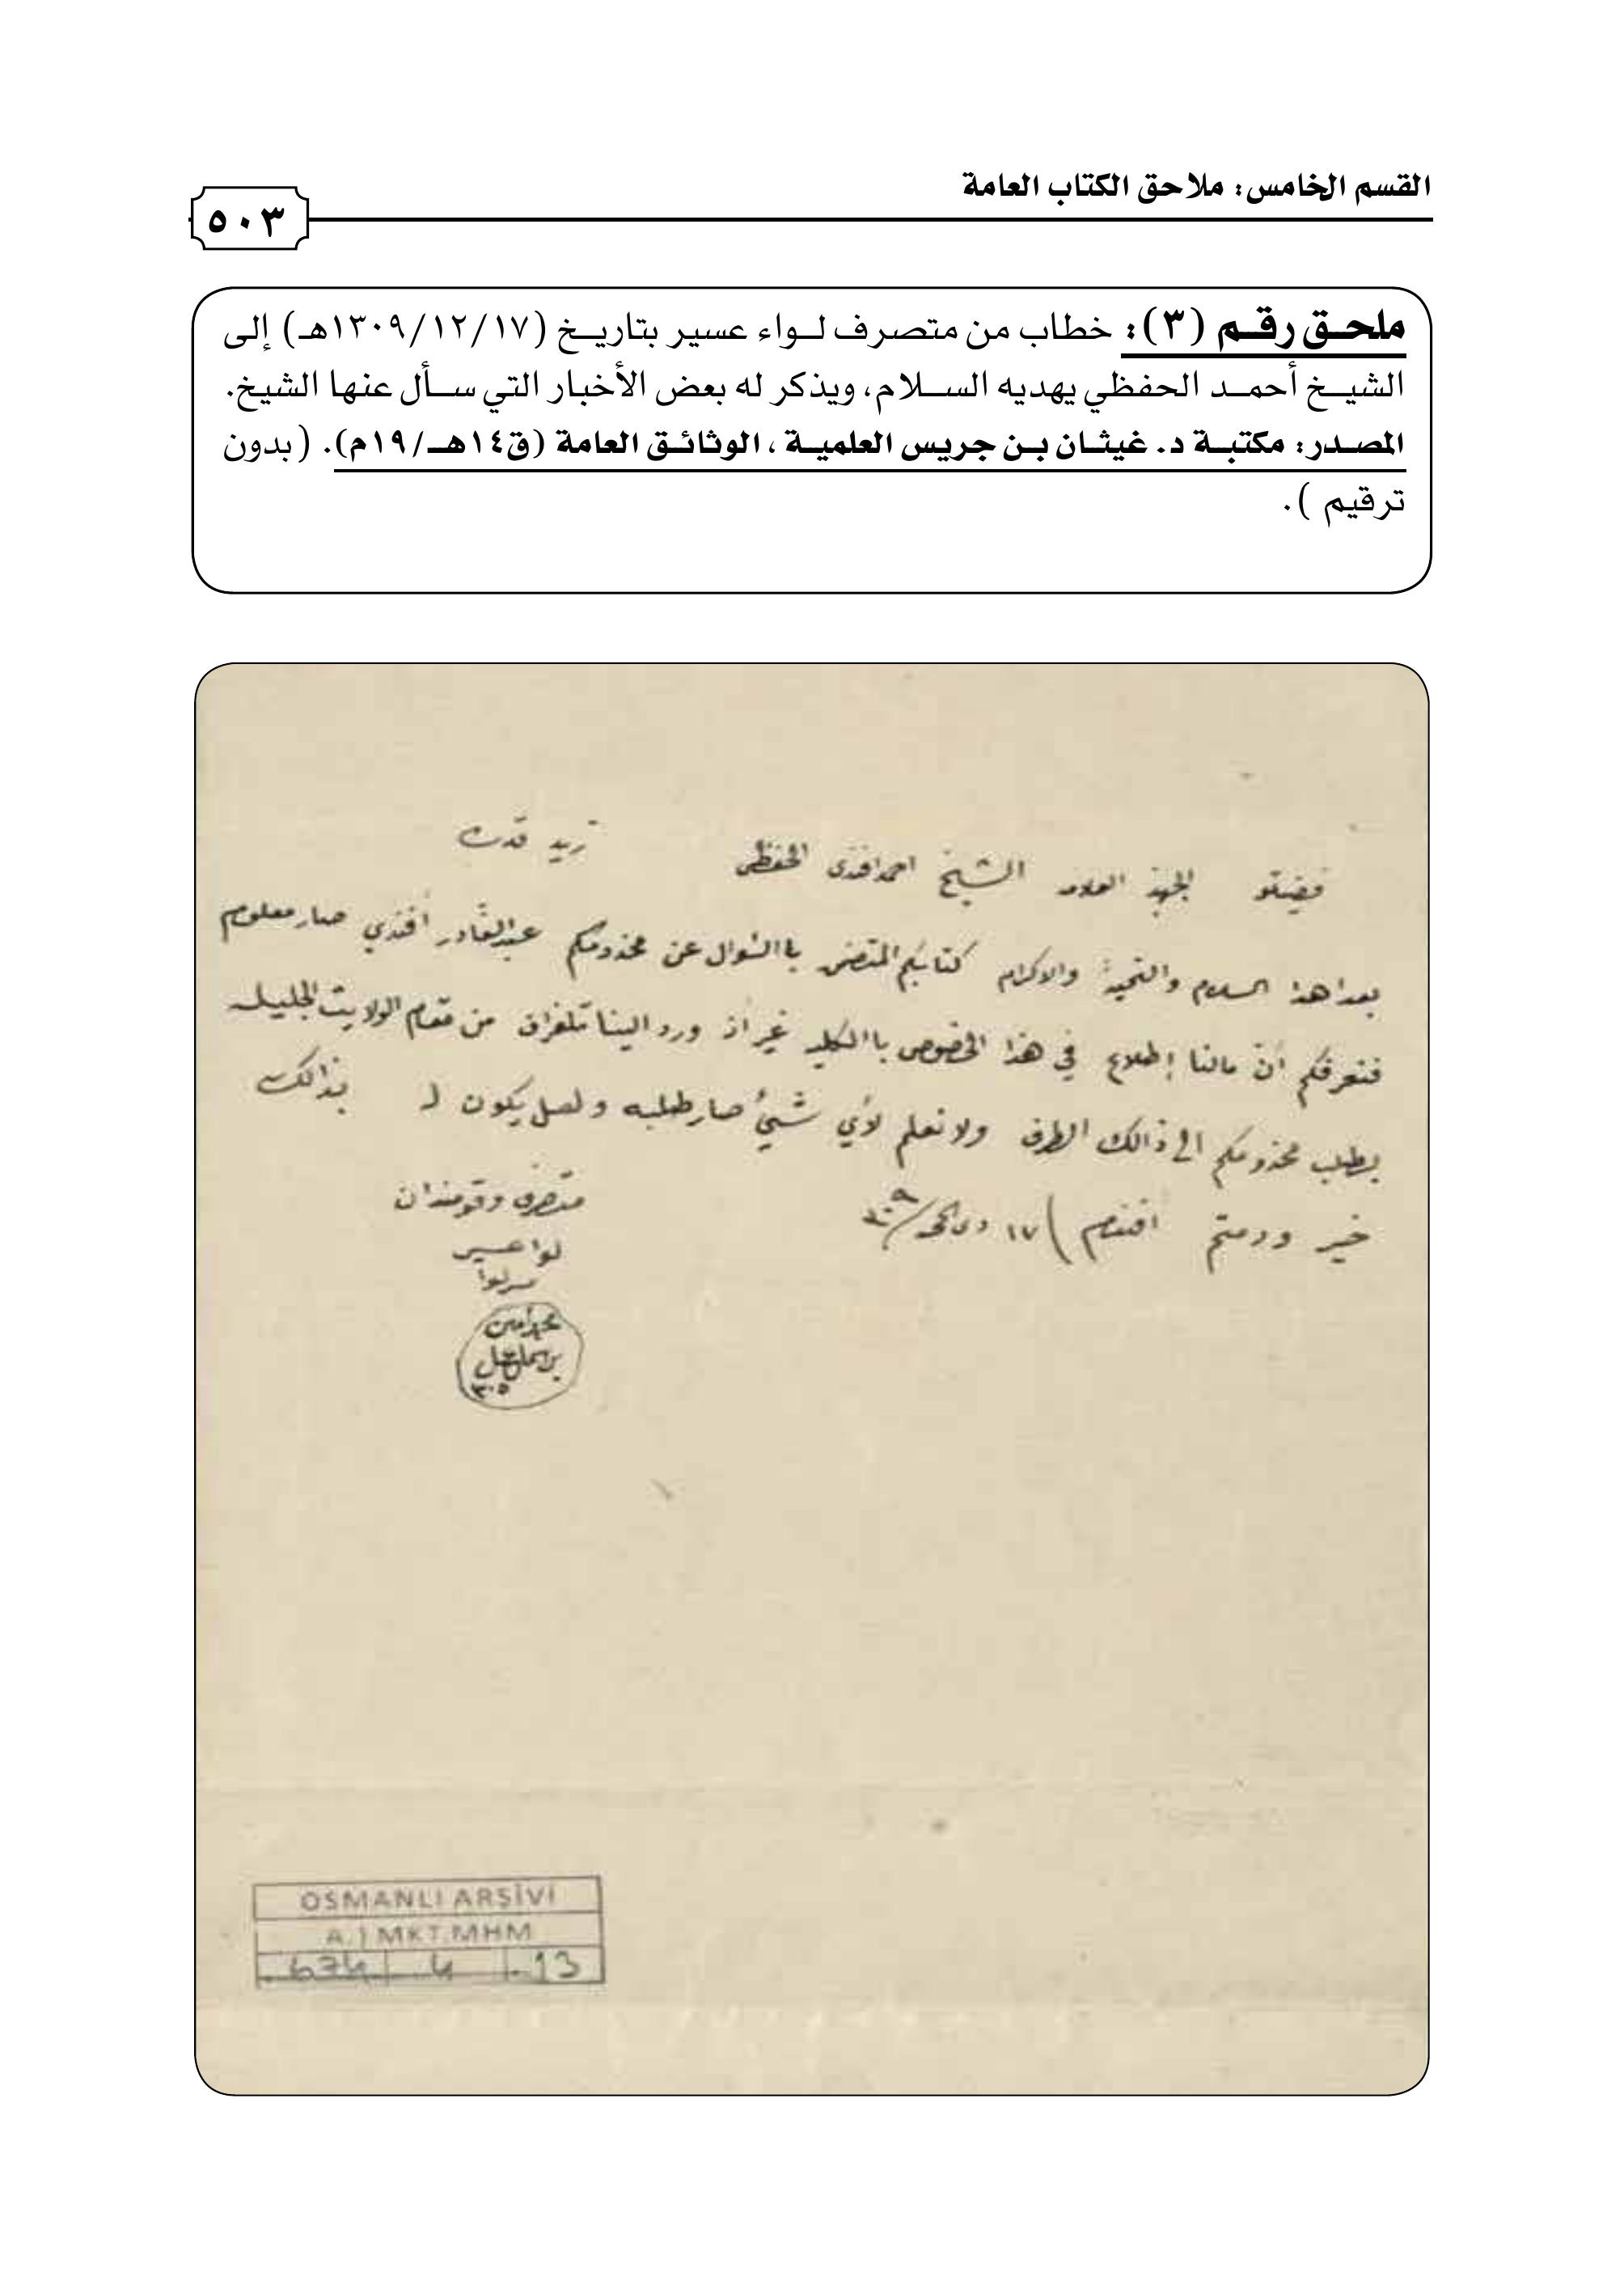 القسم الخامس: ملاحق الكتاب العامة
٥٠٣
ملحق رقم (٣): خطاب من متصرف لواء عسير بتاريخ (١٣٠٩/١٢/١٧هـ) إلى
الشيخ أحمد الحفظي يهديه السلام، ويذكر له بعض الأخبار التي سأل عنها الشيخ.
المصدر: مكتبة د. غيثان بن جريس العلمية، الوثائق العامة (ق١٤هـ/١٩م). (بدون
ترقيم ).
فضيلتو الجهبذ العلامه الشيخ احمد افندى الحفظى زيد قدره
بعد اهدا السلام والتحية والاكرام كتابكم المتضمن باالسؤال عن مخدومكم عبدالقادر أفندي صار معلوم
فنعرفكم أنّ مالنا إطلاع في هذا الخصوص باالكليه غير أن ورد الينا تلغراف من مقام الولايت الجليله
بطلب مخدومكم الى ذالك الطرف ولا نعلم لأي شيئ صار طلبه ولعل يكون لـ بذالك
خير ودمتم افندم ١٧ ذى الحجه ٣٠٩
متصرف وقومندان
لوا عسير
ميرلوا
محمد امين
بن اسماعيل
٣٠٥
OSMANLI ARŞİVİ
A.} MKT.MHM
674 4 13